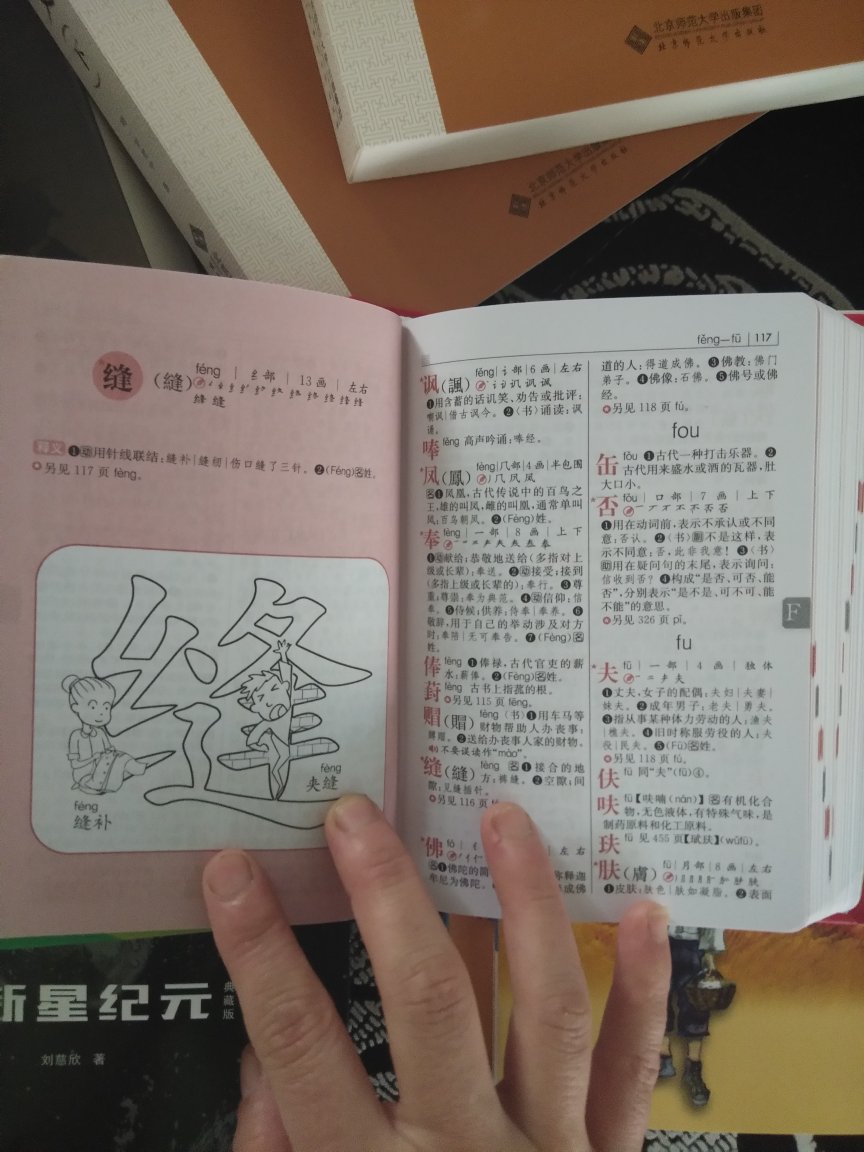 北京师范大学出版集团
北京师范大学出版社
北京师范大学出版社
缝(縫) féng | 纟部 | 13画 | 左右
释义 ❶动用针线联结：缝补|缝纫|伤口缝了三针。❷(Féng)名姓。
○另见 117 页 fèng。
缝
féng
缝补
fèng
夹缝
fěng—fū | 117
*讽(諷) fěng | 讠部 | 6画 | 左右
❶用含蓄的话讥笑、劝告或批评：
嘲讽|借古讽今。❷〈书〉诵读：讽
诵。
唪 fěng 高声吟诵：唪经。
*凤(鳳) fèng | 几部 | 4画 | 半包围
名❶凤凰，古代传说中的百鸟之
王，雄的叫凤，雌的叫凰，通常单叫
凤：百鸟朝凤。❷(Fèng)姓。
*奉 fèng | 一部 | 8画 | 上下
❶动献给；恭敬地送给(多指对上
级或长辈)：奉送。❷动接受；接到
(多指上级或长辈的)：奉行。❸尊
重；尊崇：奉为典范。❹动信仰：信
奉。❺侍候；供养：侍奉|奉养。❻
敬辞，用于自己的举动涉及对方
时：奉陪|无可奉告。❼(Fèng)名
姓。
俸 fèng ❶俸禄，古代官吏的薪
水：薪俸。❷(Fèng)名姓。
葑 fèng 古书上指菰的根。
○另见 115 页 fēng。
赗(賵) fèng〈书〉❶用车马等
财物帮助人办丧事：
赙赗。❷送给办丧事人家的财物。
不要误读作“mào”。
*缝(縫) fèng 名❶接合的地
方：裤缝。❷空隙；间
隙：见缝插针。
○另见 116 页
*佛 fó | 亻 左右
❶佛陀的简 称释迦
牟尼为佛陀。 或成佛
道的人：得道成佛。❸佛教：佛门
弟子。❹佛像：石佛。❺佛号或佛
经。
○另见 118 页 fú。
fou
缶 fǒu ❶古代一种打击乐器。❷
古代用来盛水或酒的瓦器，肚
大口小。
*否 fǒu | 口部 | 7画 | 上下
❶用在动词前，表示不承认或不同
意：否认。❷〈书〉副不是这样，表
示不同意：否，此非我意！❸〈书〉
助用在疑问句的末尾，表示询问：
信收到否？❹构成“是否、可否、能
否”，分别表示“是不是、可不可、能
不能”的意思。
○另见 326 页 pǐ。
F
fu
*夫 fū | 一部 | 4画 | 独体
❶丈夫，女子的配偶：夫妇|夫妻|
妹夫。❷成年男子：老夫|勇夫。
❸指从事某种体力劳动的人：渔夫
|樵夫。❹旧时称服劳役的人：夫
役|民夫。❺(Fū)名姓。
○另见 118 页 fú。
伕 fū 同“夫”(fū)④。
呋 fū【呋喃(nán)】名有机化合
物，无色液体，有特殊气味，是
制药原料和化工原料。
玞 fū 见 455 页【珷玞】(wǔfū)。
*肤(膚) fū | 月部 | 8画 | 左右
❶皮肤：肤色|肤如凝脂。❷表面
新星纪元
典藏版
刘慈欣 著